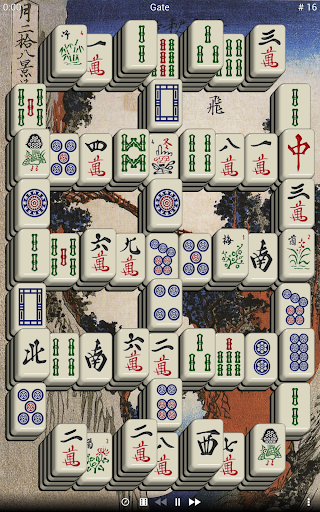 0:00 Gate # 16
月二拾八景
飛
一萬 三萬
四萬 冬 八萬 一萬 中
三萬
六萬 九萬 梅 南 菊
北 南 六萬 二萬
二萬 二萬 西 七萬